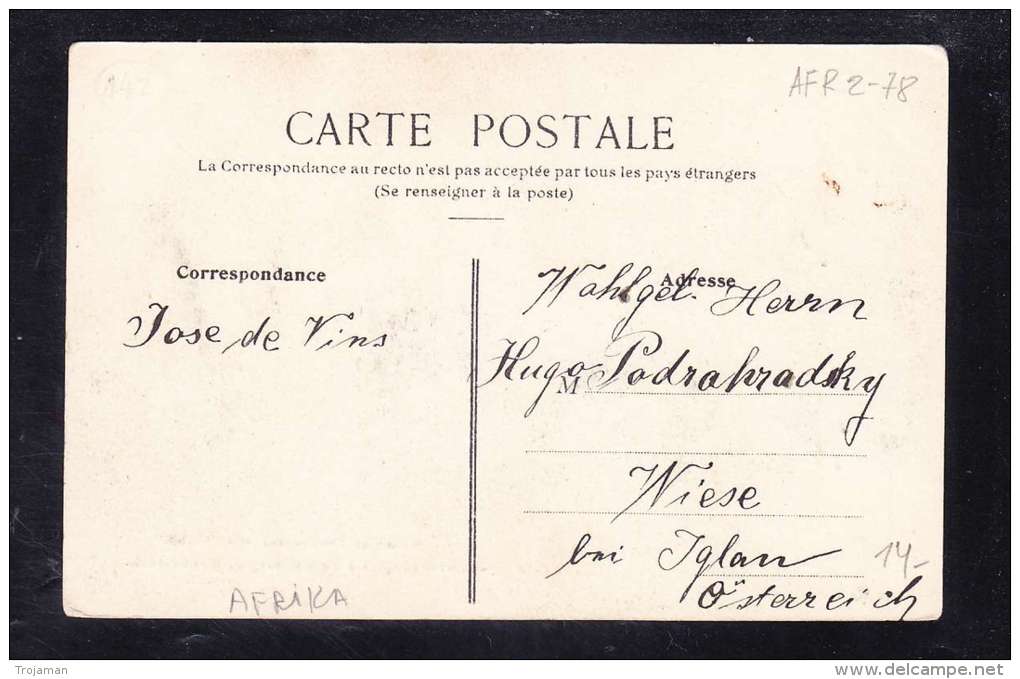 142
AFR 2-78
CARTE POSTALE
La Correspondance au recto n'est pas acceptée par tous les pays étrangers
(Se renseigner à la poste)
Correspondance
Jose de Vins
Adresse
Wohlgeb. Herrn
M Hugo Podrahradsky
Wiese
bei Iglau
Österreich
14-
AFRIKA
Trojaman
delcampe.net